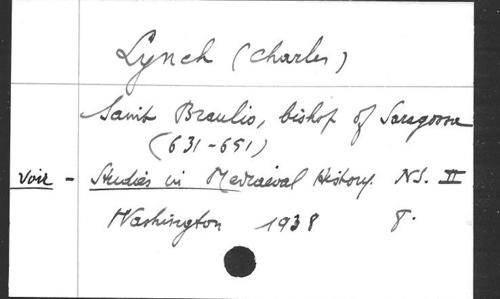 Lynch (Charles)
Saint Braulio, bishop of Saragossa
(631-651)
voir - Studies in Mediaeval History. NS. II
Washington 1938 8°.